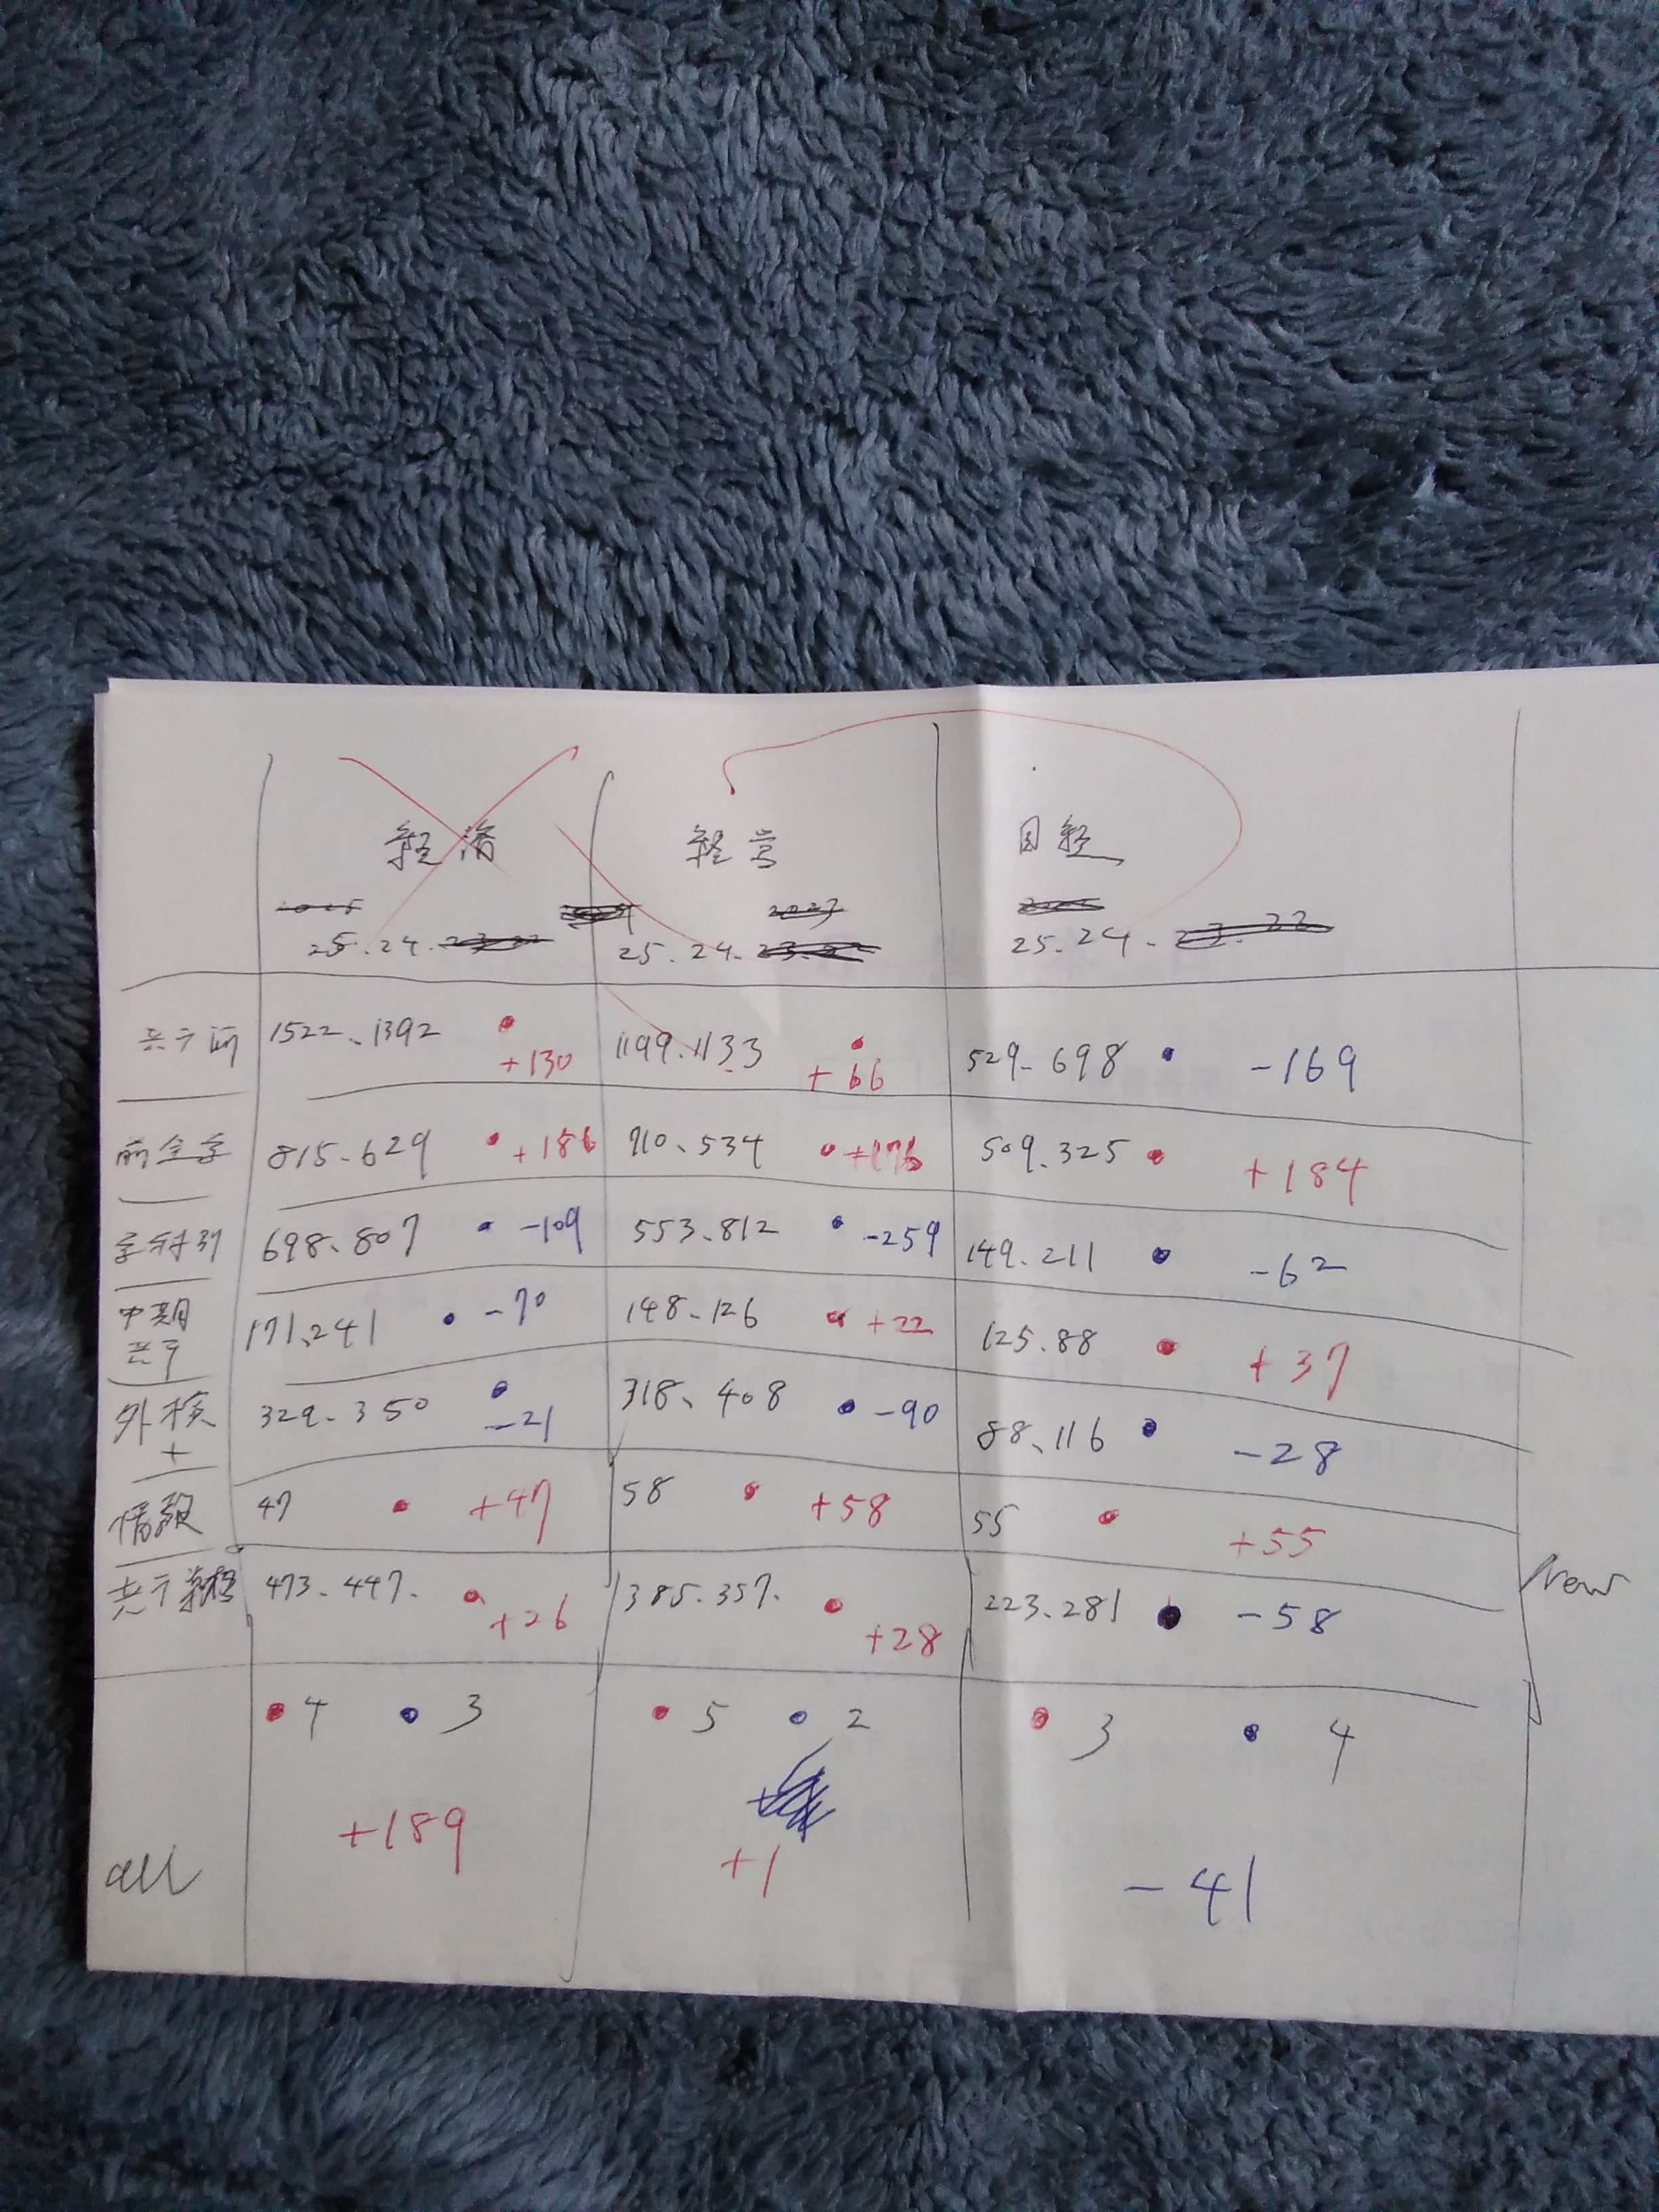 経済 経営 国経
25.24. 25.24. 25.24.
共テ前 1522、1392 +130 1199.1133 +66 529-698 -169
前全学 815-629 +186 710、534 +176 509.325 +184
学部別 698-807 -109 553.812 -259 149.211 -62
中期 171、241 -70 148-126 +22 125.88 +37
共テ
外検 329-350 -21 318、408 -90 88、116 -28
+
情報 47 +47 58 +58 55 +55
共テ 473.447. +26 385.357. +28 223.281 -58 New
4 3 5 2 3 4
all +189 +1 -41